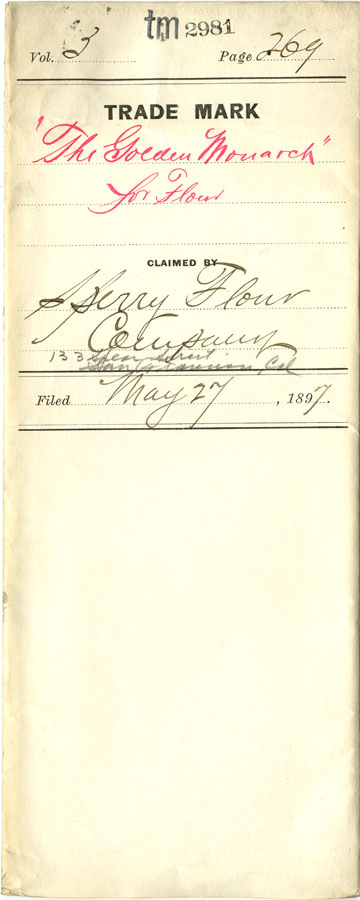 tm 2981
Vol. 3 Page 269
TRADE MARK
"The Golden Monarch"
for Flour
CLAIMED BY
Sperry Flour
Company
133 Spear Street
San Francisco, Cal
Filed May 27, 1897.